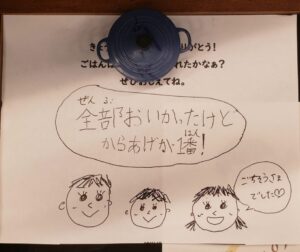 きょう りがとう！
ごはんは れたかなぁ？
ぜひおしえてね。
ぜん ぶ
全部おいかったけど
ばん
からあげが1番！
ごちそうさま
でした♡